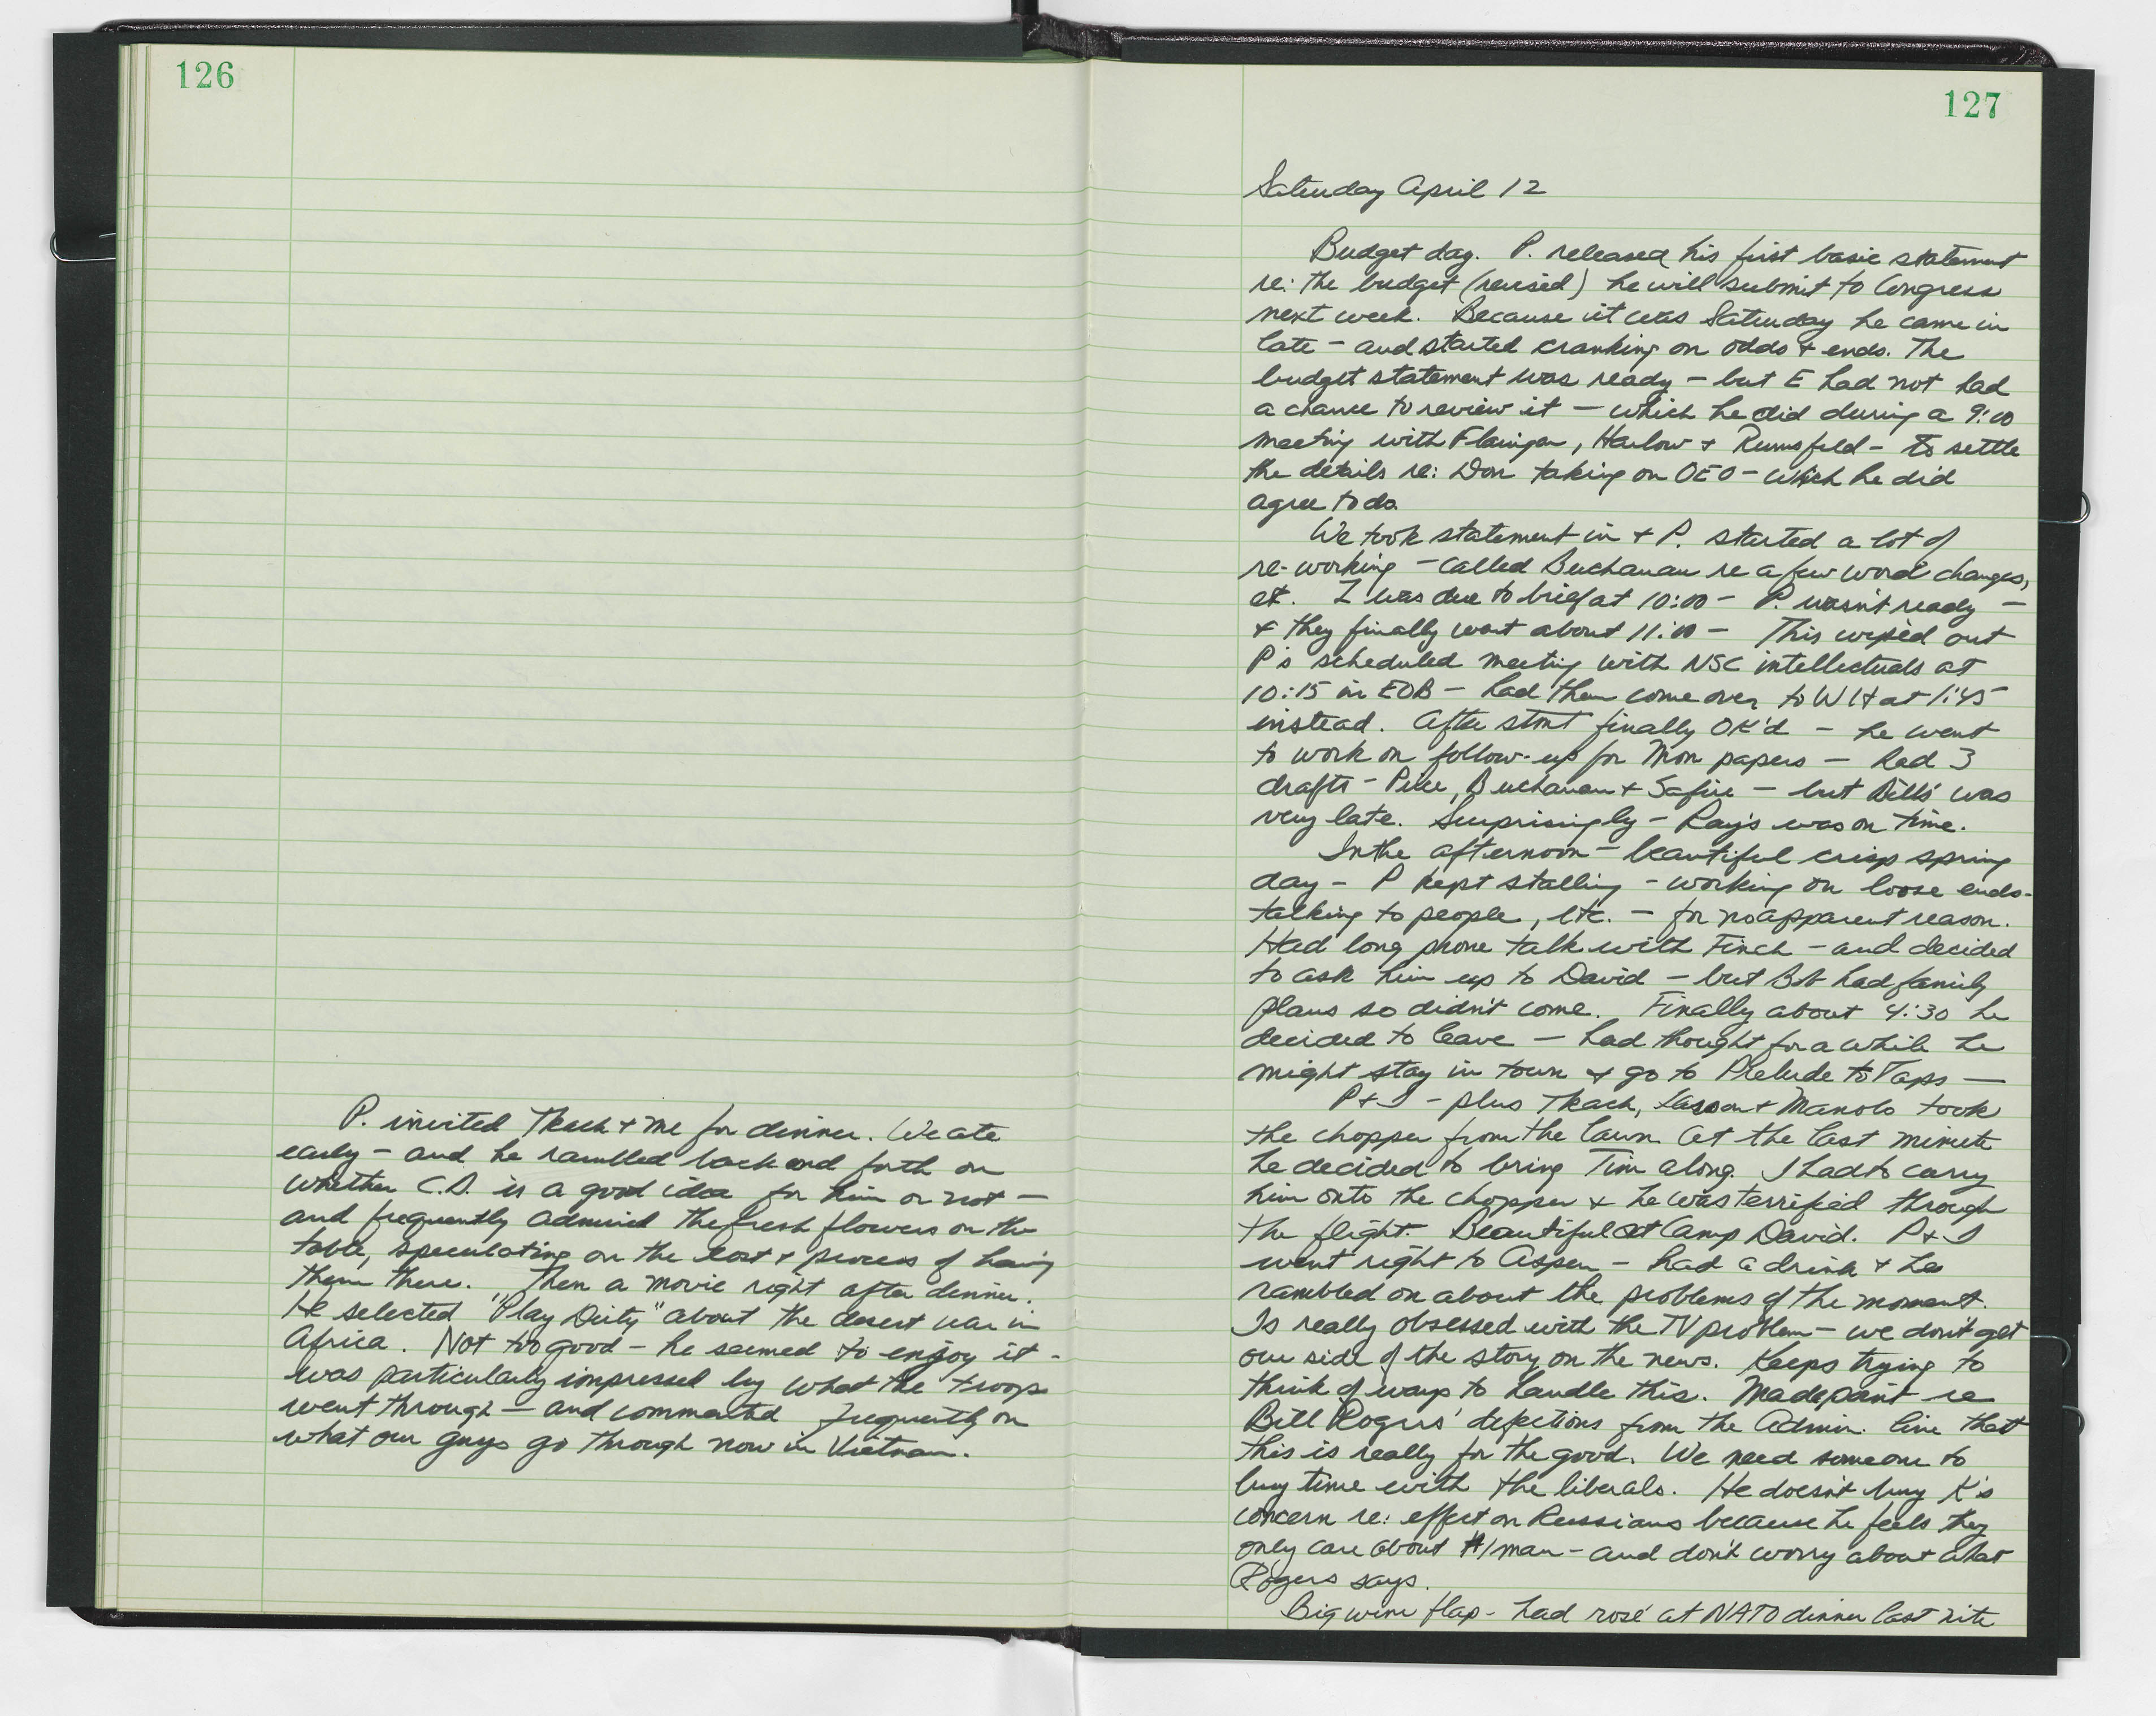 126
P. invited Tkach + me for dinner. We ate
early - and he rambled back and forth on
whether C.D. is a good idea for him or not -
and frequently admired the fresh flowers on the
table, speculating on the cost + process of having
them there. Then a movie right after dinner.
He selected "Play Dirty" about the desert war in
Africa. Not too good - he seemed to enjoy it -
was particularly impressed by what the troops
went through - and commented frequently on
what our guys go through now in Vietnam.
127
Saturday April 12
Budget day. P. released his first basic statement
re: the budget (revised) he will submit to Congress
next week. Because it was Saturday he came in
late - and started cranking on odds + ends. The
budget statement was ready - but E had not had
a chance to review it - which he did during a 9:00
meeting with Flanigan, Harlow + Rumsfeld - to settle
the details re: Don taking on OEO - which he did
agree to do.
We took statement in + P. started a lot of
re-working - called Buchanan re a few word changes,
etc. Z was due to brief at 10:00 - P. wasn't ready -
+ they finally went about 11:00 - This wiped out
P's scheduled meeting with NSC intellectuals at
10:15 in EOB - had them come over to WH at 1:45
instead. After stmt finally OK'd - he went
to work on follow-up for Mon papers - had 3
drafts - Price, Buchanan + Safire - but Bill's was
very late. Surprisingly - Ray's was on time.
In the afternoon - beautiful crisp spring
day - P kept stalling - working on loose ends -
talking to people, etc. - for no apparent reason.
Had long phone talk with Finch - and decided
to ask him up to David - but Bob had family
plans so didn't come. Finally about 4:30 he
decided to leave - had thought for a while he
might stay in town + go to Prelude to Taps -
P + I - plus Tkach, + Manolo took
the chopper from the lawn. At the last minute
he decided to bring Tim along. I had to carry
him onto the chopper + he was terrified through
the flight. Beautiful at Camp David. P + I
went right to Aspen - had a drink + he
rambled on about the problems of the moment.
Is really obsessed with the TV problem - we don't get
our side of the story on the news. Keeps trying to
think of ways to handle this. Made point re
Bill Rogers' defections from the Admin. line that
this is really for the good. We need someone to
buy time with the liberals. He doesn't buy K's
concern re: effect on Russians because he feels they
only care about #1 man - and don't worry about what
Rogers says.
Big wine flap - had rosé at NATO dinner last nite